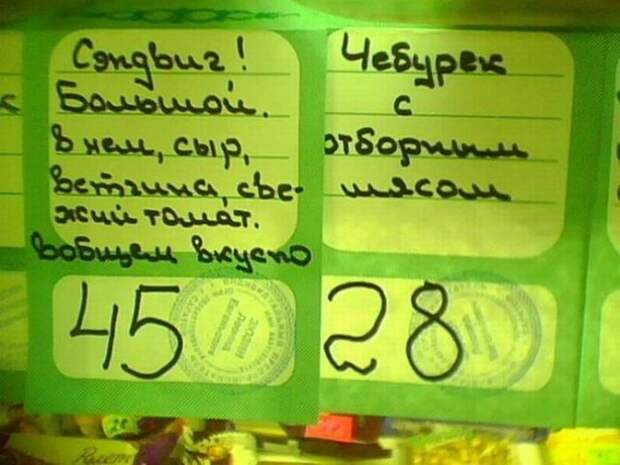 Сэндвич!
Большой.
в нем, сыр,
ветчина, све-
жий томат.
вобщем вкусно
45
Чебурек
с
отборным
мясом
28